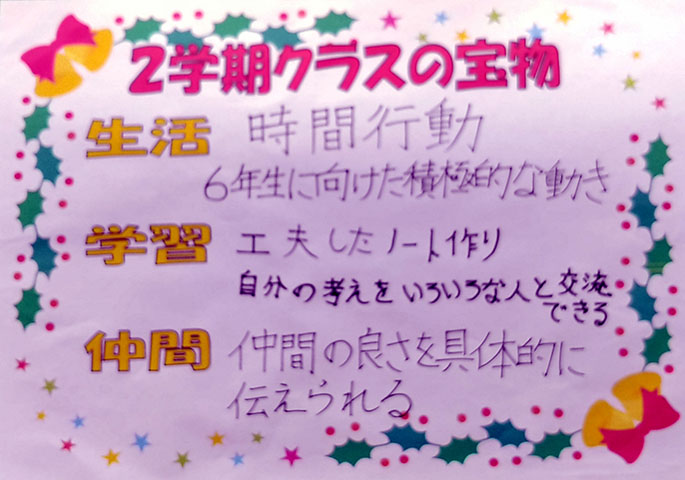 2学期クラスの宝物
生活 時間行動
6年生に向けた積極的な動き
学習 工夫したノート作り
自分の考えをいろいろな人と交流
できる
仲間 仲間の良さを具体的に
伝えられる